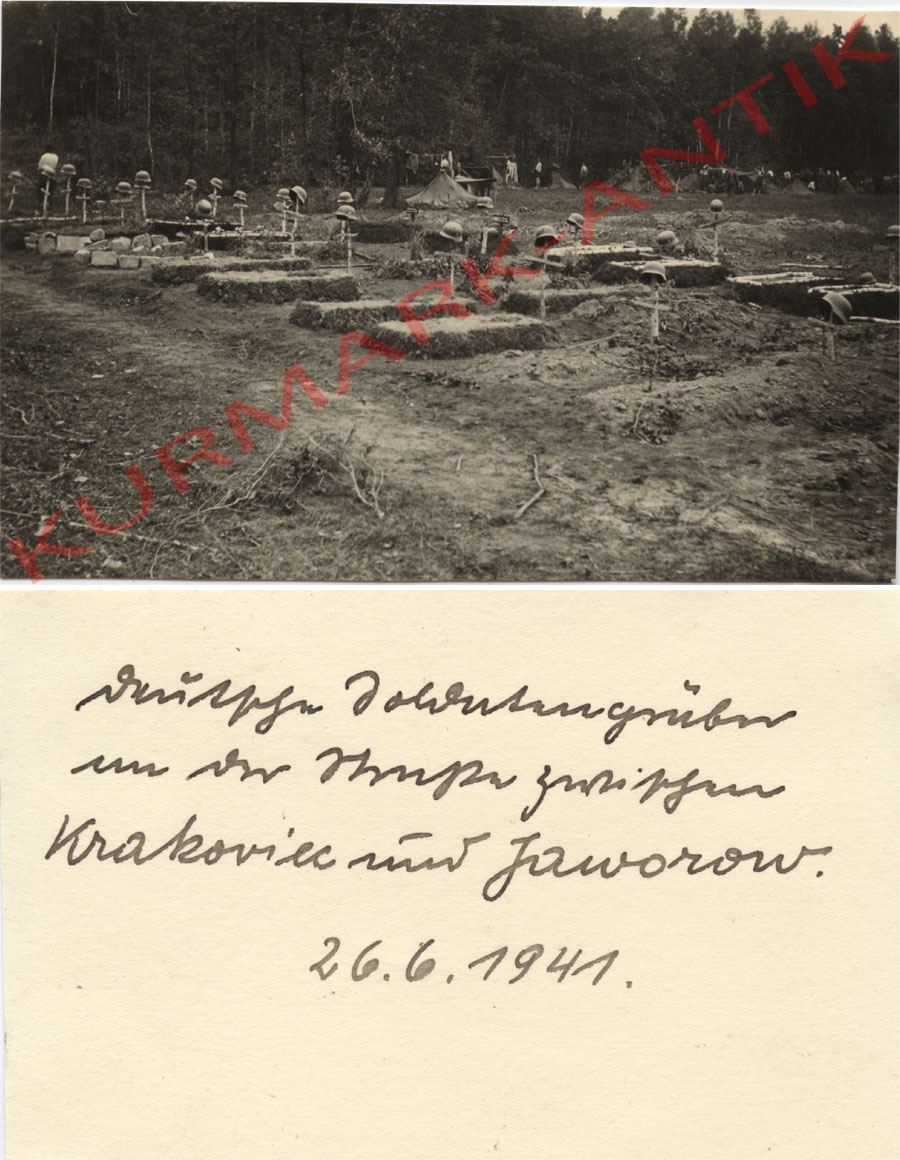 KURMARK-ANTIK
Deutsche Soldatengräber
an der Straße zwischen
Krakoviec und Jaworow.
26.6.1941.